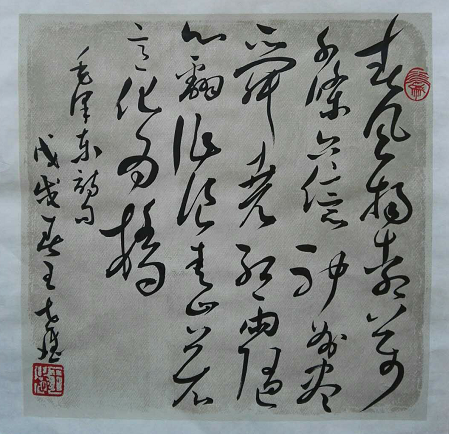 春风杨柳万
千條六億神州尽
舜尧红雨随
心翻作浪青山着
意化为橋
毛泽东诗句
戊戌春王